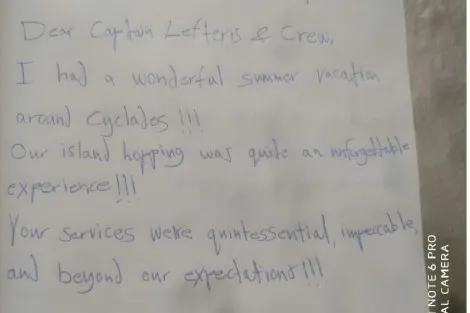 Dear Captain Lefteris & Crew,
I had a wonderful summer vacation
around Cyclades !!!
Our island hopping was quite an unforgettable
experience!!!
Your services were quintessential, impeccable,
and beyond our expectations!!!
NOTE 6 PRO
AL CAMERA